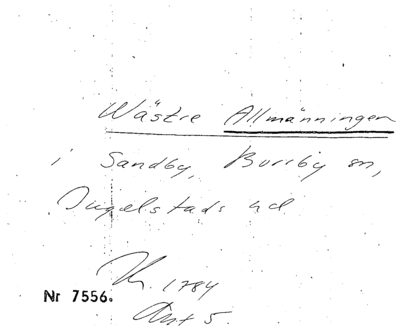 Wästre Allmänningen
i Sandby, Borrby sn,
Ingelstads hd
Kv. 1784
Nr 7556.
Ant 5.